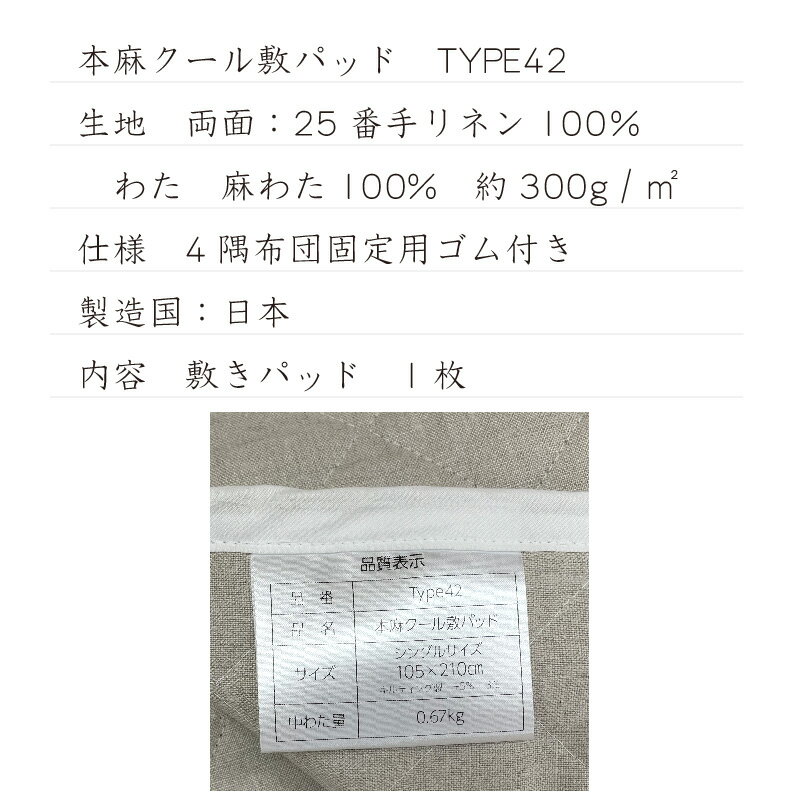 本麻クール敷パッド　TYPE42
生地　両面：25番手リネン100%
わた　麻わた100%　約300g/㎡
仕様　4隅布団固定用ゴム付き
製造国：日本
内容　敷きパッド　1枚
品質表示
品 番　Type42
品 名　本麻クール敷パッド
サイズ　シングルサイズ
105×210cm
キルティング製
中わた量　0.67kg